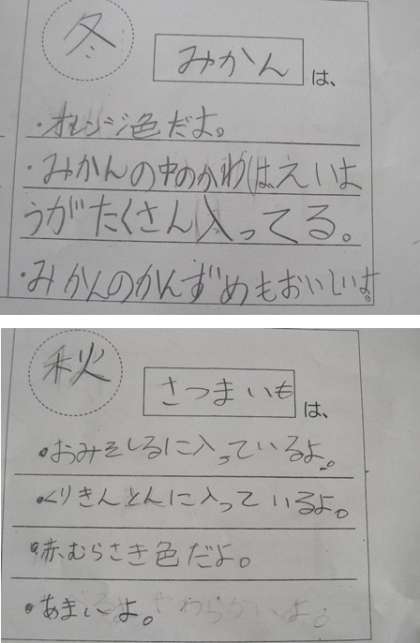 冬
みかん は、
・オレンジ色だよ。
・みかんの中のかわはえいよ
うがたくさん入ってる。
・みかんのかんずめもおいしいよ。
秋
さつまいも は、
・おみそしるに入っているよ。
・くりきんとんに入っているよ。
・赤むらさき色だよ。
・あまいよ。やわらかいよ。